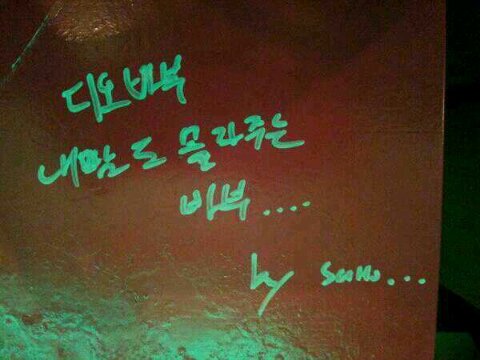 디오바부
내맘도 몰라주는
바부....
by suho...